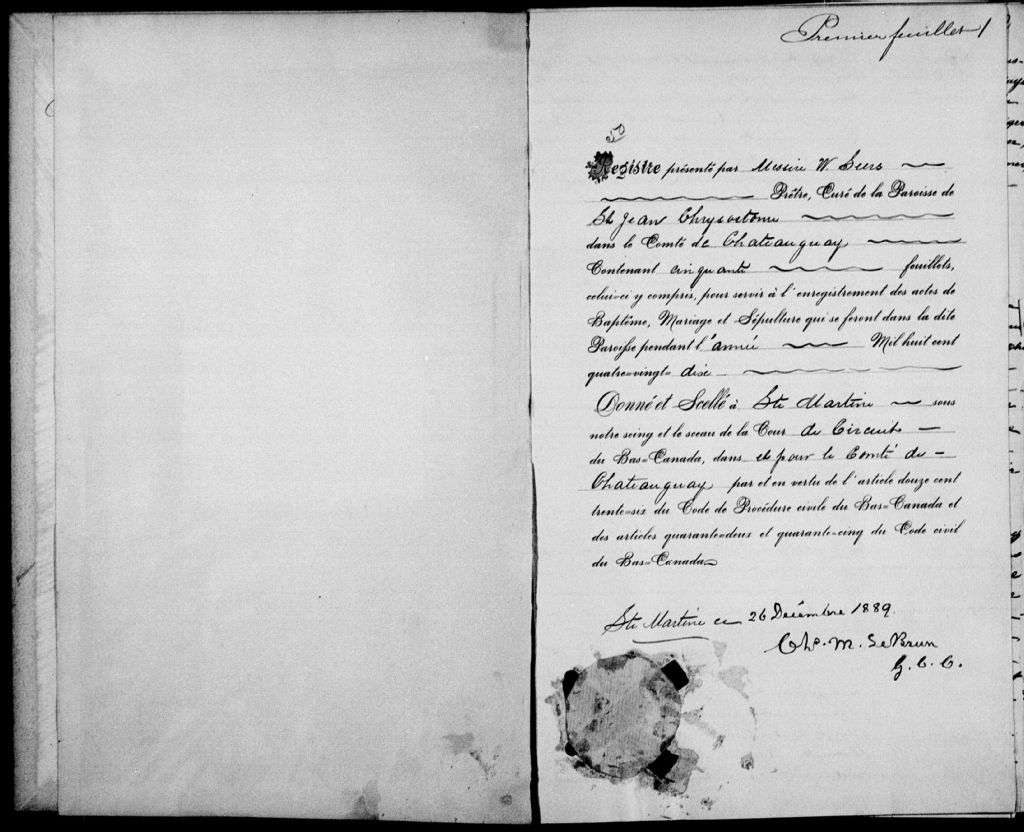 Premier feuillet 1
50
Registre présenté par Messire W.
Prêtre, Curé de la Paroisse de
St Jean Chrysostome
dans le Comté de Chateauguay
Contenant cinquante feuillets,
celui=ci y compris, pour servir à l'enregistrement des actes de
Baptême, Mariage et Sépulture qui se feront dans la dite
Paroisse pendant l'année Mil huit cent
quatre=vingt= dix
Donné et Scellé à Ste Martine sous
notre seing et le sceau de la Cour de Circuit
du Bas=Canada, dans et pour le Comté de
Chateauguay par et en vertu de l'article douze cent
trente=six du Code de Procédure civile du Bas=Canada et
des articles quarante=deux et quarante=cinq du Code civil
du Bas=Canada
Ste Martine ce 26 Décembre 1889.
Chs. M. LeBrun
G. C. C.